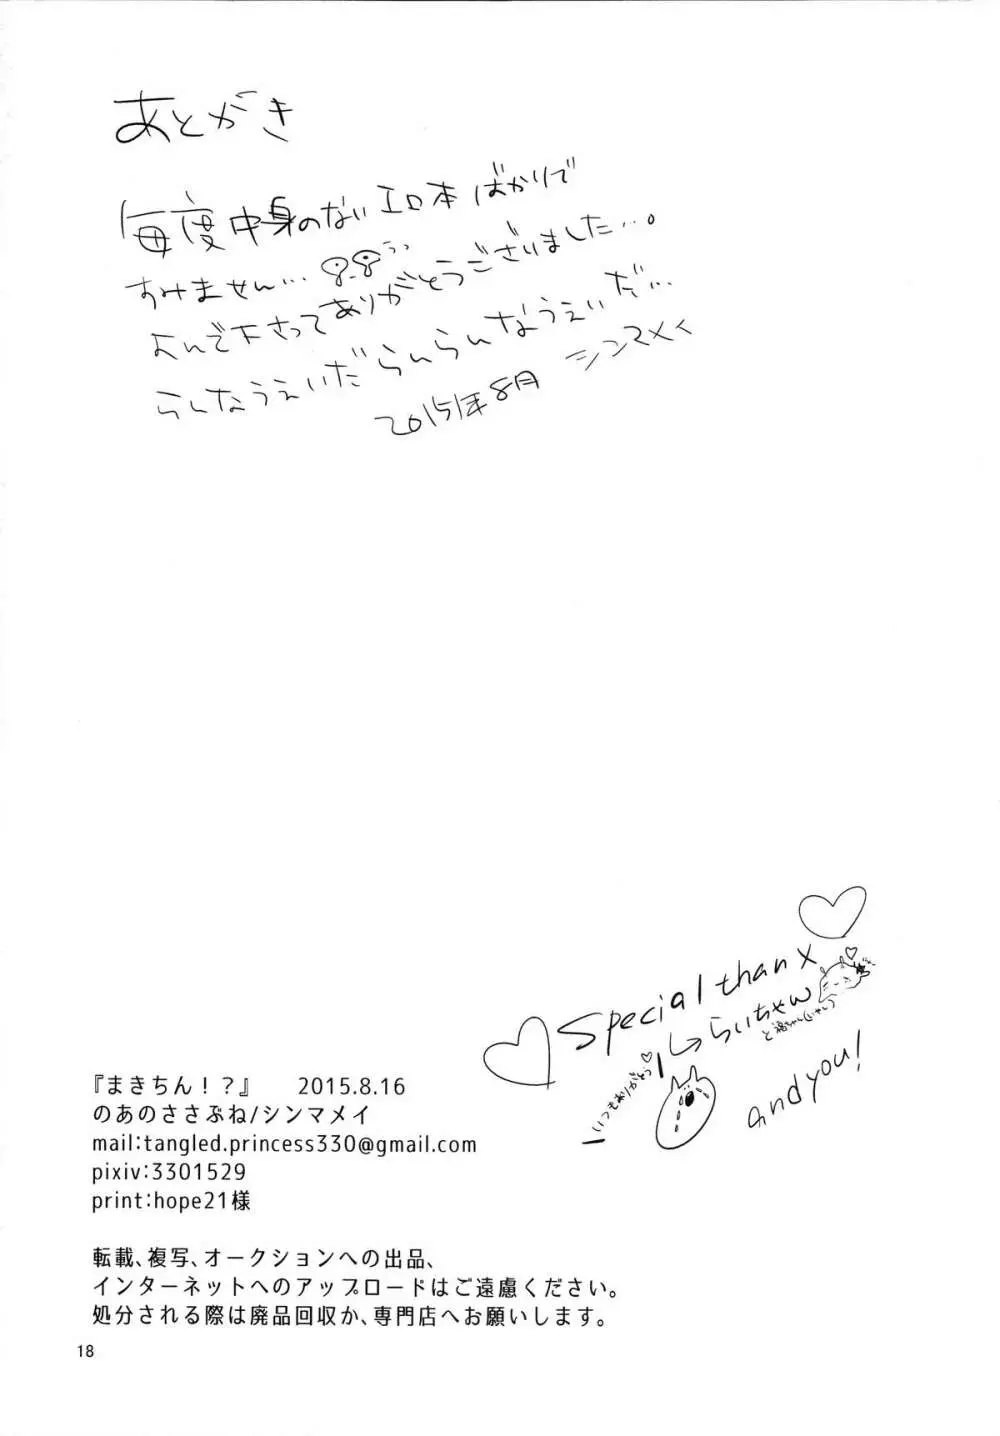 あとがき
毎度中身のないエロ本ばかりで
すみません…
よんで下さってありがとうございました…。
らんなうぇいだらんらんなうぇいだ…
2015年8月 シンマメイ
Special thanx
らいちゃん
いつもありがとう
and you!
『まきちん!?』 2015.8.16
のあのささぶね/シンマメイ
mail:tangled.princess330@gmail.com
pixiv:3301529
print:hope21様
転載、複写、オークションへの出品、
インターネットへのアップロードはご遠慮ください。
処分される際は廃品回収か、専門店へお願いします。
18